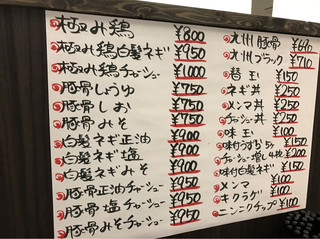 極み鶏 ¥800
極み鶏白髪ネギ ¥950
極み鶏チャーシュー ¥1000
豚骨しょうゆ ¥750
豚骨しお ¥750
豚骨みそ ¥750
白髪ネギ正油 ¥900
白髪ネギ塩 ¥900
白髪ネギみそ ¥900
豚骨正油チャーシュー ¥950
豚骨塩チャーシュー ¥950
豚骨みそチャーシュー ¥950
九州豚骨 ¥690
九州ブラック ¥710
替玉 ¥150
ネギ丼 ¥250
メンマ丼 ¥250
チャーシュー丼 ¥250
味玉 ¥100
味付うずら5ヶ ¥150
チャーシュー増し4枚 ¥200
味付白髪ネギ ¥150
メンマ ¥100
キクラゲ ¥100
ニンニクチップ ¥100